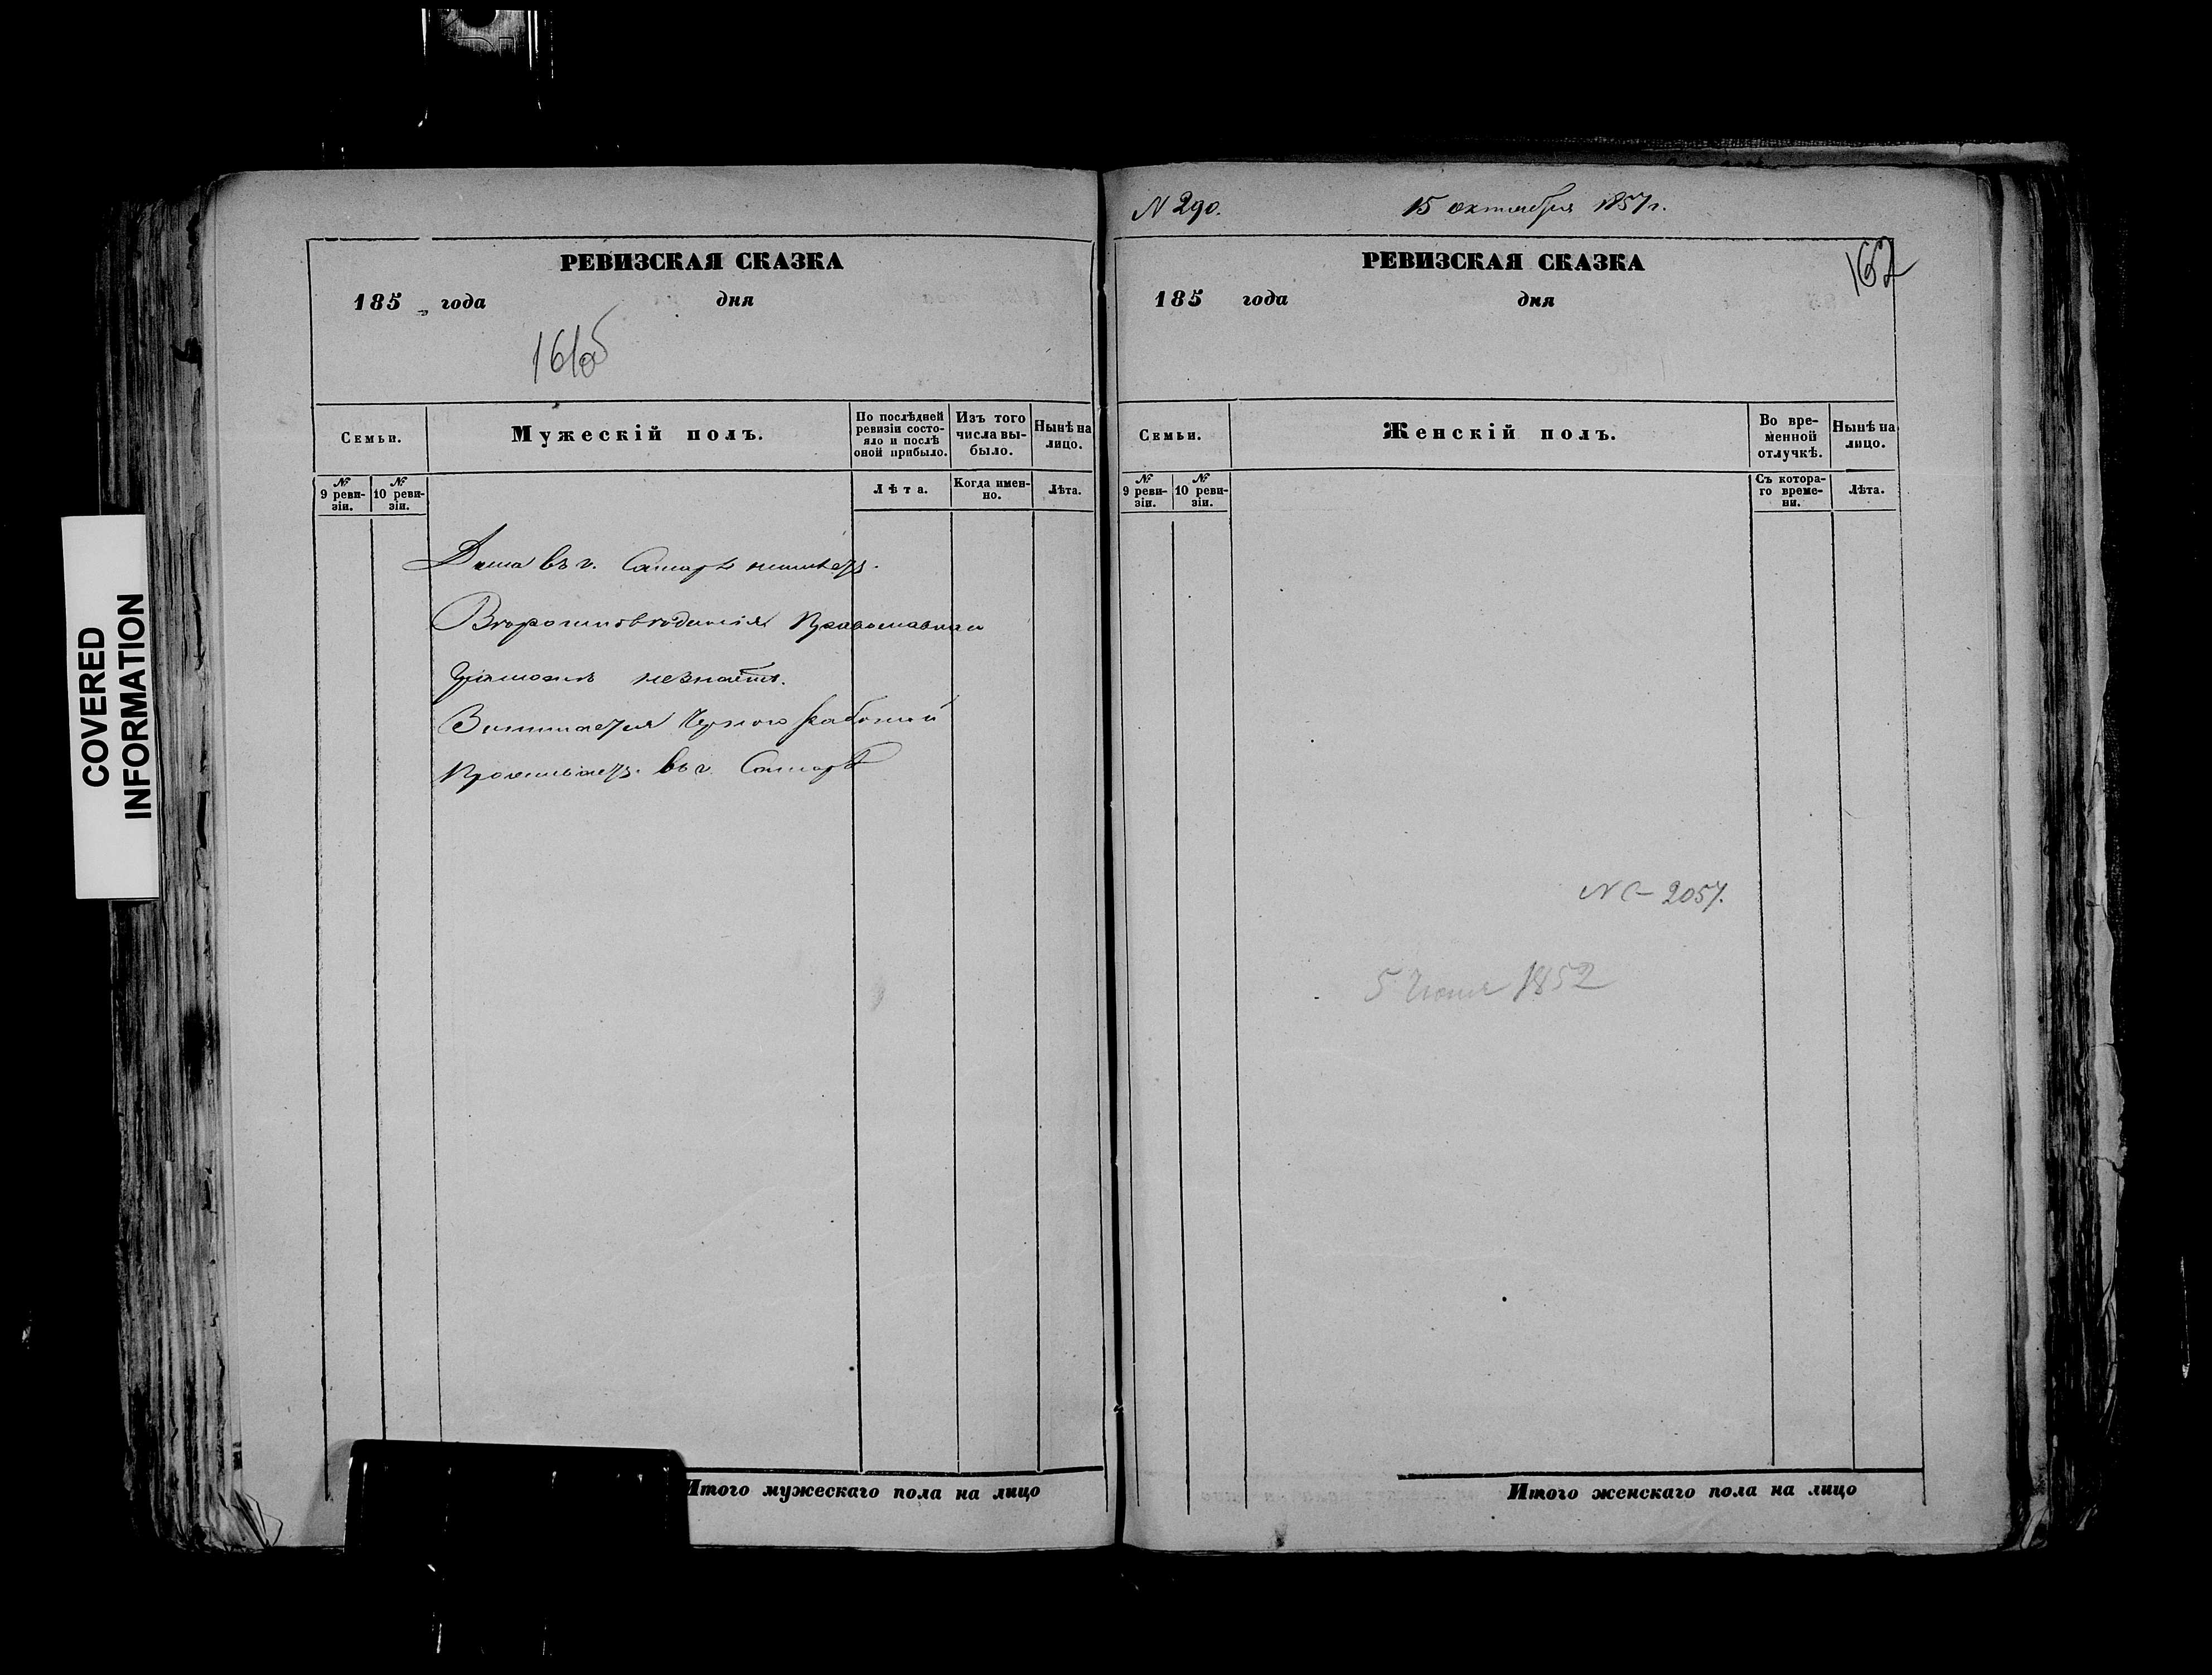 COVERED
INFORMATION
РЕВИЗСКАЯ СКАЗКА
185 года дня
161об
Семьи.
Мужескій полъ.
По послѣдней
ревизіи состо-
яло и послѣ
оной прибыло.
Изъ того
числа вы-
было.
Нынѣ на
лицо.
№
9 реви-
зіи.
№
10 реви-
зіи.
Лѣта.
Когда имен-
но.
Лѣта.
Дома въ г. Самарѣ неимѣетъ.
Вѣроисповѣданія Православнаго
Грамотѣ незнаетъ.
Занимается Черною работой
Проживаетъ въ г. Самарѣ
Итого мужескаго пола на лицо
N 290. 15 октября 1857 г.
РЕВИЗСКАЯ СКАЗКА
162
185 года дня
Семьи.
Женскій полъ.
Во вре-
менной
отлучкѣ.
Нынѣ на
лицо.
№
9 реви-
зіи.
№
10 реви-
зіи.
Съ котора-
го време-
ни.
Лѣта.
2057.
5 1852
Итого женскаго пола на лицо